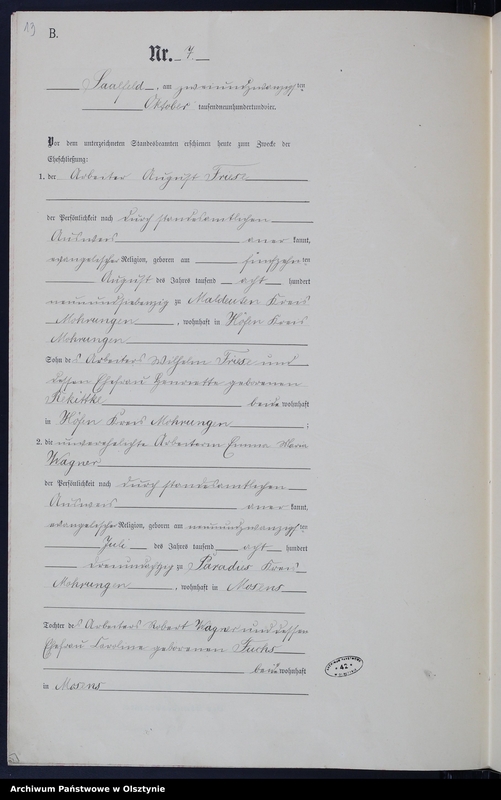 13
B.
Nr. 7
Saalfeld, am zweiundzwanzigsten
Oktober tausendneunhundertundvier.
Vor dem unterzeichneten Standesbeamten erschienen heute zum Zwecke der
Eheschließung:
1. der Arbeiter August Friese
der Persönlichkeit nach durch standesamtlichen
Ausweis anerkannt,
evangelischer Religion, geboren am fünfzehnten
August des Jahres tausend achthundert
neunundsiebenzig zu Maldeuten Kreis
Mohrungen, wohnhaft in Kreis
Mohrungen
Sohn des Arbeiters Wilhelm Friese und
dessen Ehefrau Henriette geborenen
beide wohnhaft
in Kreis Mohrungen;
2. die unverehelichte Arbeiterin Emma Maria
Wagner
der Persönlichkeit nach durch standesamtlichen
Ausweis anerkannt,
evangelischer Religion, geboren am neunundzwanzigsten
Juli des Jahres tausend achthundert
zu Paradies Kreis
Mohrungen, wohnhaft in Mosens
Tochter des Arbeiters Robert Wagner und dessen
Ehefrau Caroline geborenen Fuchs
beide wohnhaft
in Mosens
42
Archiwum Państwowe w Olsztynie